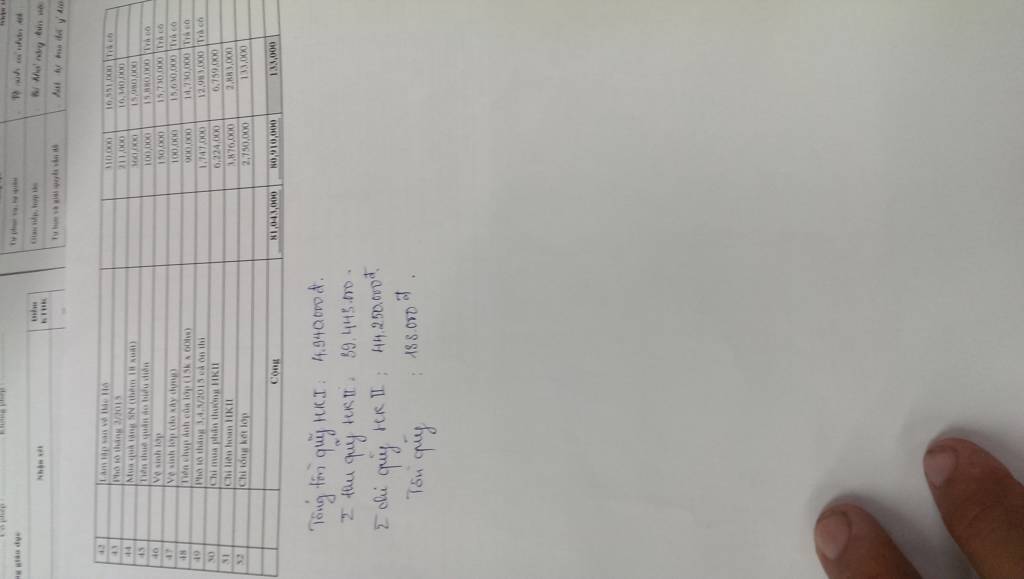 Tự phục vụ, tự quản
Giao tiếp, hợp tác
Tự học và giải quyết vấn đề
Nhận xét
KTĐK
42 Làm tập san về Bác Hồ 310,000 16,551,000 Trả cô
43 Phô tô tháng 2/2015 211,000 16,340,000
44 Mua quà tặng SN (thêm 18 xuất) 360,000 15,980,000
45 Tiền thuê quần áo biểu diễn 100,000 15,880,000 Trả cô
46 Vệ sinh lớp 150,000 15,730,000 Trả cô
47 Vệ sinh lớp (do xây dựng) 100,000 15,630,000 Trả cô
48 Tiền chụp ảnh của lớp (15k x 60hs) 900,000 14,730,000 Trả cô
49 Phô tô tháng 3,4,5/2015 cả ôn thi 1,747,000 12,983,000 Trả cô
50 Chi mua phần thưởng HKII 6,224,000 6,759,000
51 Chi liên hoan HKII 3,876,000 2,883,000
52 Chi tổng kết lớp 2,750,000 133,000
Cộng 81,043,000 80,910,000 133,000
Tổng tồn quỹ HKI: 4.940.000đ.
Σ thu quỹ HK II: 39.443.000.
Σ chi quỹ HK II: 44.250.000đ.
Tồn quỹ : 133.000đ.